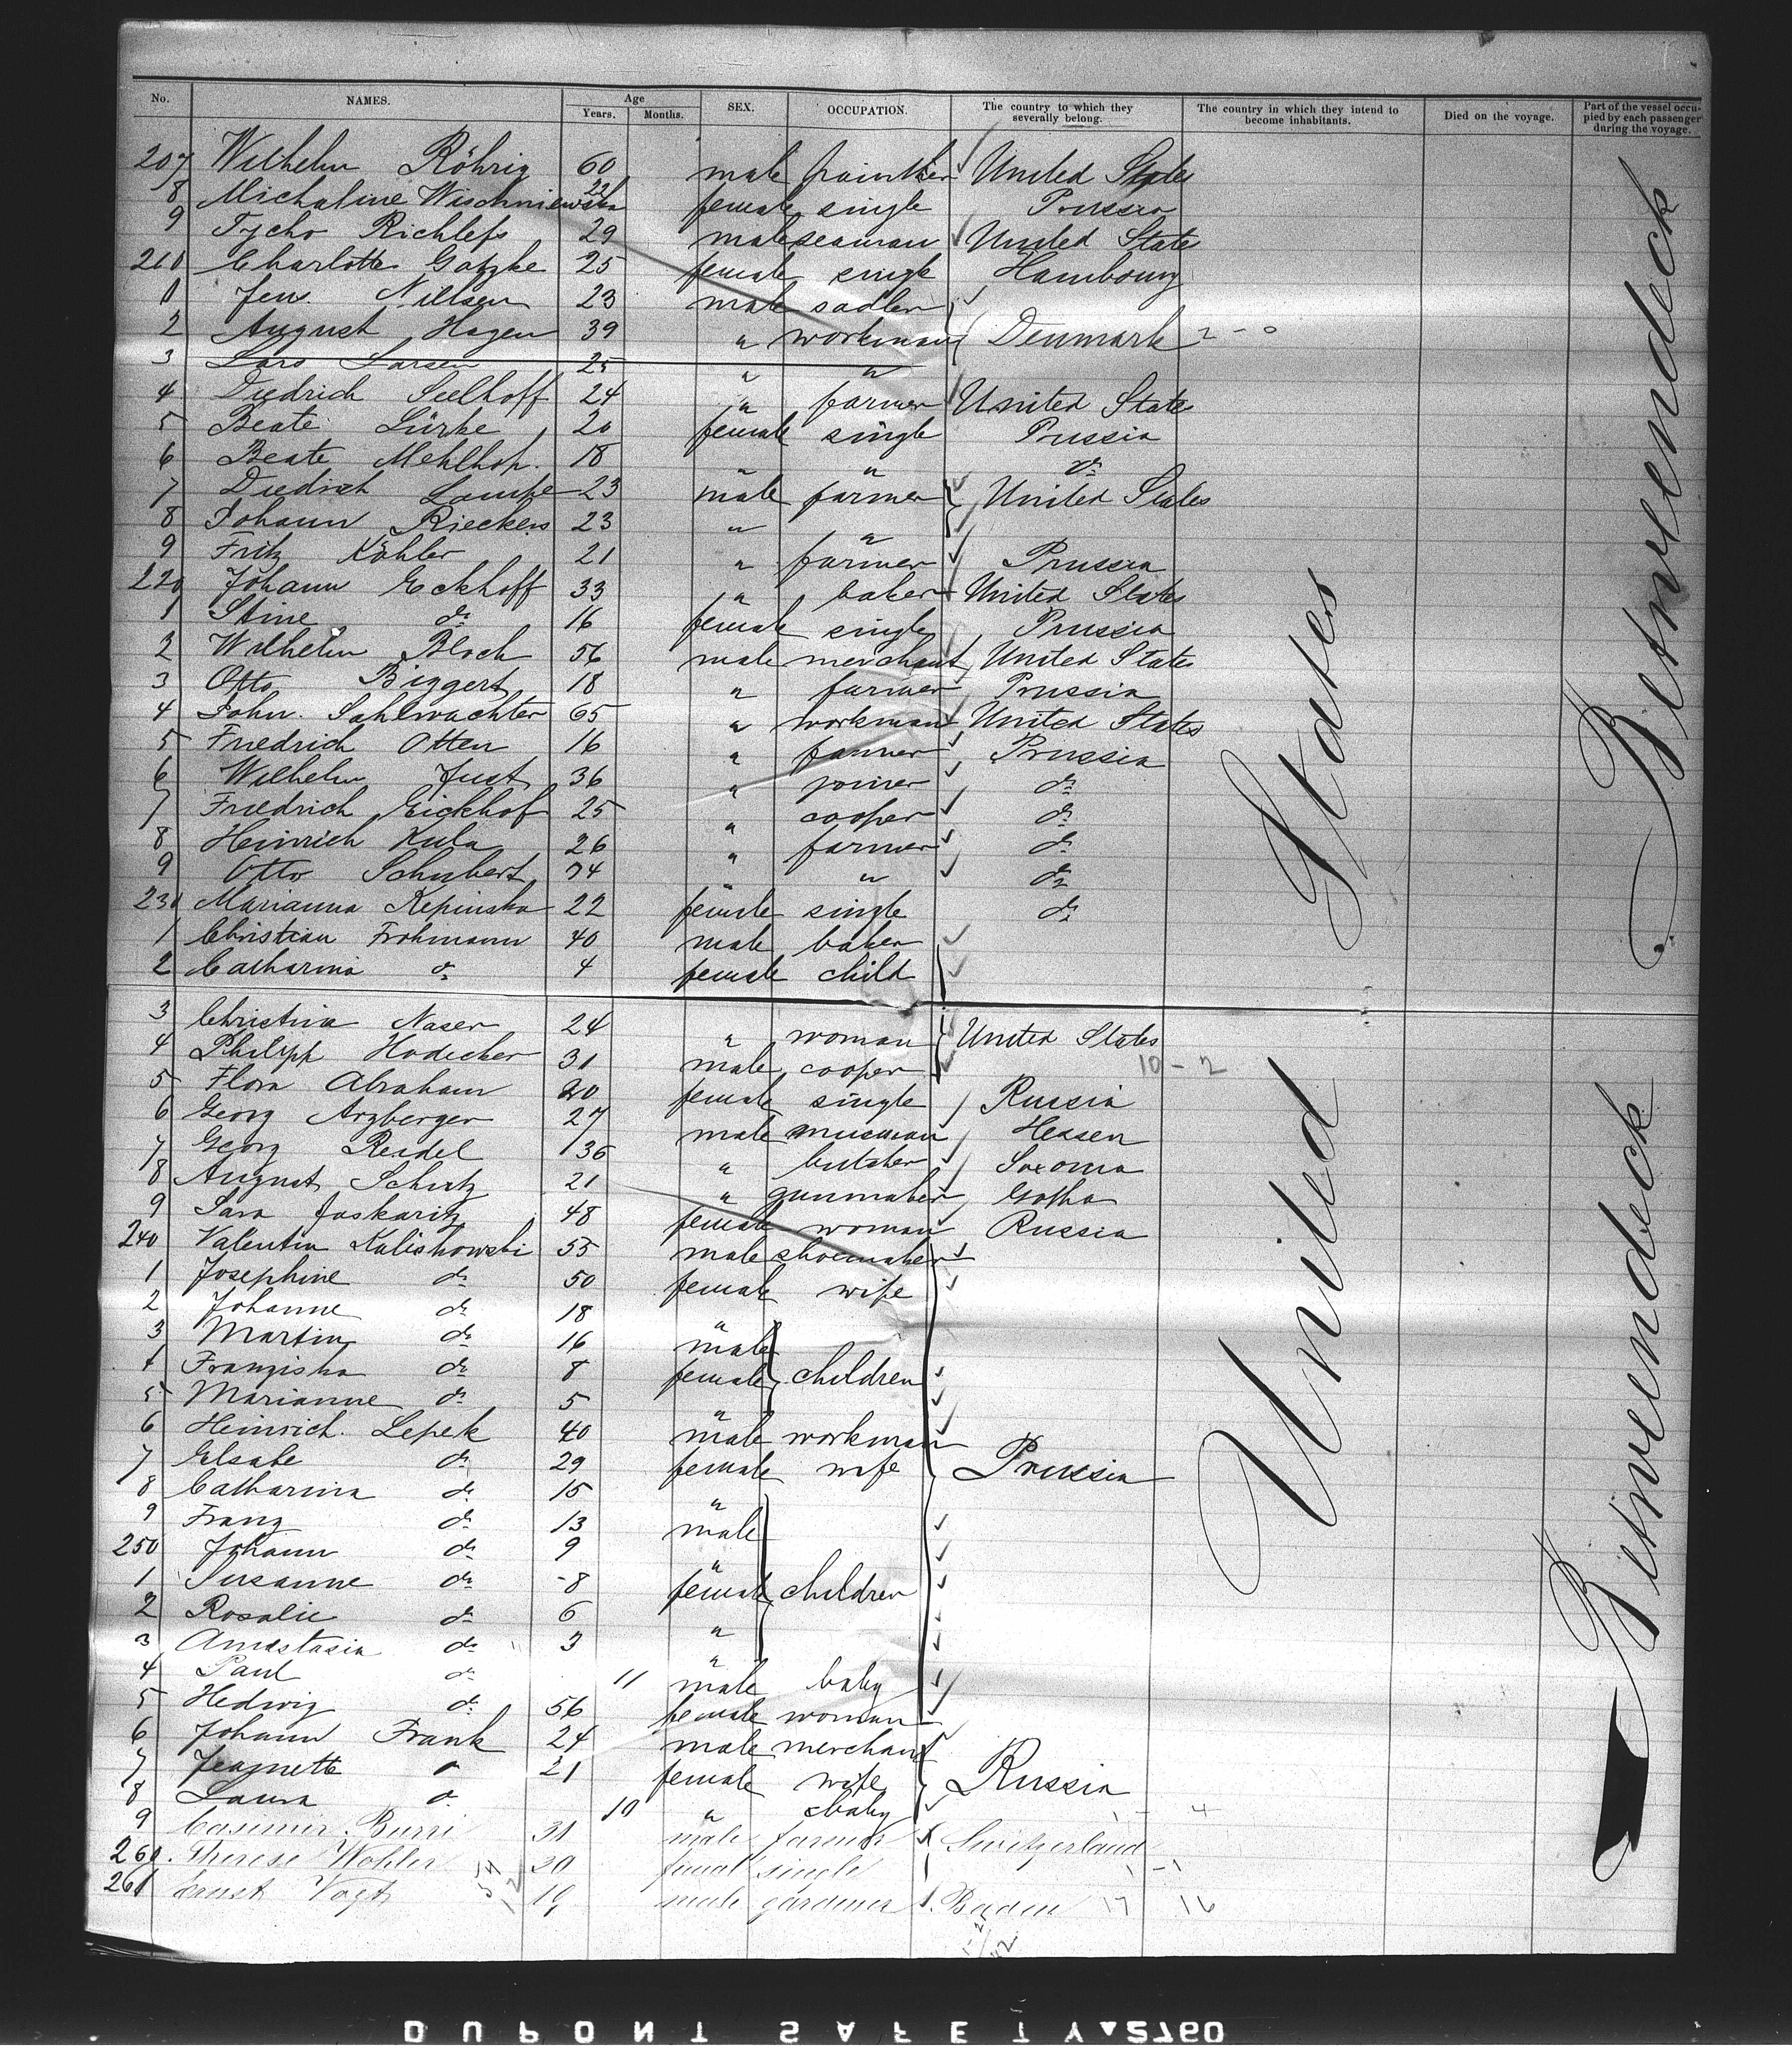 No. NAMES. Age Years. Months. SEX. OCCUPATION. The country to which they severally belong. The country in which they intend to become inhabitants. Died on the voyage. Part of the vessel occupied by each passenger during the voyage.
207 Wilhelm Röhrig 60 male painther United States
8 Michaline Wischniewska 22 female single Prussia
9 Tycho Richlefs 29 male seaman United State
210 Charlotte Gatzke 25 female single Hambourg
11 Jen. Nillsen 23 male sadler
2 August Hagen 39 " workman Denmark 2 - 0
3 Lars Larsen 25 " "
4 Diedrich Seelhoff 24 " farmer United States
5 Beate Lürke 20 female single Prussia
6 Beate Mehlhop. 18 " " do
7 Diedrich Lampe 23 male farmer United States
8 Johann Rieckers 23 " "
9 Fritz Köhler 21 " farmer Prussia
220 Johann Eckhoff 33 " baker United States
1 Stine do 16 female single Prussia
2 Wilhelm Bloch 56 male merchant United States
3 Otto Biggert 18 " farmer Prussia
4 John. Sahlwachter 65 " workman United States
5 Friedrich Otten 16 " farmer Prussia
6 Wilhelm Just 36 " joiner do
7 Friedrich Eickhof 25 " cooper do
8 Heinrich Kula 26 " farmer do
9 Otto Schubert 24 " " do
230 Marianna Kepinska 22 female single do
1 Christian Frohmann 40 male baker
2 Catharina do 4 female child
3 Christina Naser 24 " woman United States
4 Philipp Hodecker 31 male cooper 10 - 2
5 Flora Abraham 20 female single Russia
6 Georg Arzberger 27 male musician Hessen
7 Georg Reidel 36 " butcher Saxonia
8 August Schutz 21 " gunmaker Gotha
9 Sara Joskaritz 48 female woman Russia
240 Valentin Kalishowski 55 male shoemaker
1 Josephine do 50 female wife
2 Johanne do 18 "
3 Martin do 16 male
4 Franziska do 8 female children
5 Marianne do 5 "
6 Heinrich. Lepek 40 male workman
7 Elsabe do 29 female wife Prussia
8 Catharina do 15 "
9 Franz do 13 male
250 Johann do 9 "
1 Susanne do 8 female children
2 Rosalie do 6 "
3 Anastasia do 3 "
4 Paul do 11 male baby
5 Hedwig do 56 female woman
6 Johann Frank 24 male merchant
7 Jeannette do 21 female wife Russia
8 Laura do 10 " baby
9 Casimir Burri 31 male farmer Switzerland 1 - 4
260. Therese Wohler 20 female single 1 - 1
261 Ernst Vogt 19 male gardener Baden 17 16
United States
Betweendeck
Betweendeck
DUPONT SAFETY 2760